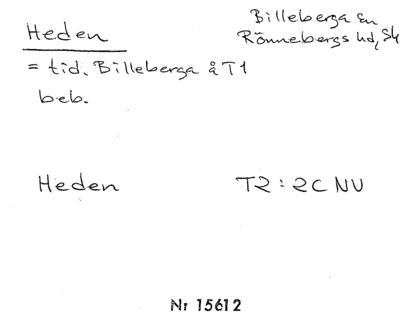 Heden
Billeberga sn
Rönnebergs hd, Sk
= tid. Billeberga å T1
beb.
Heden T2: 2C NV
Nr 15612